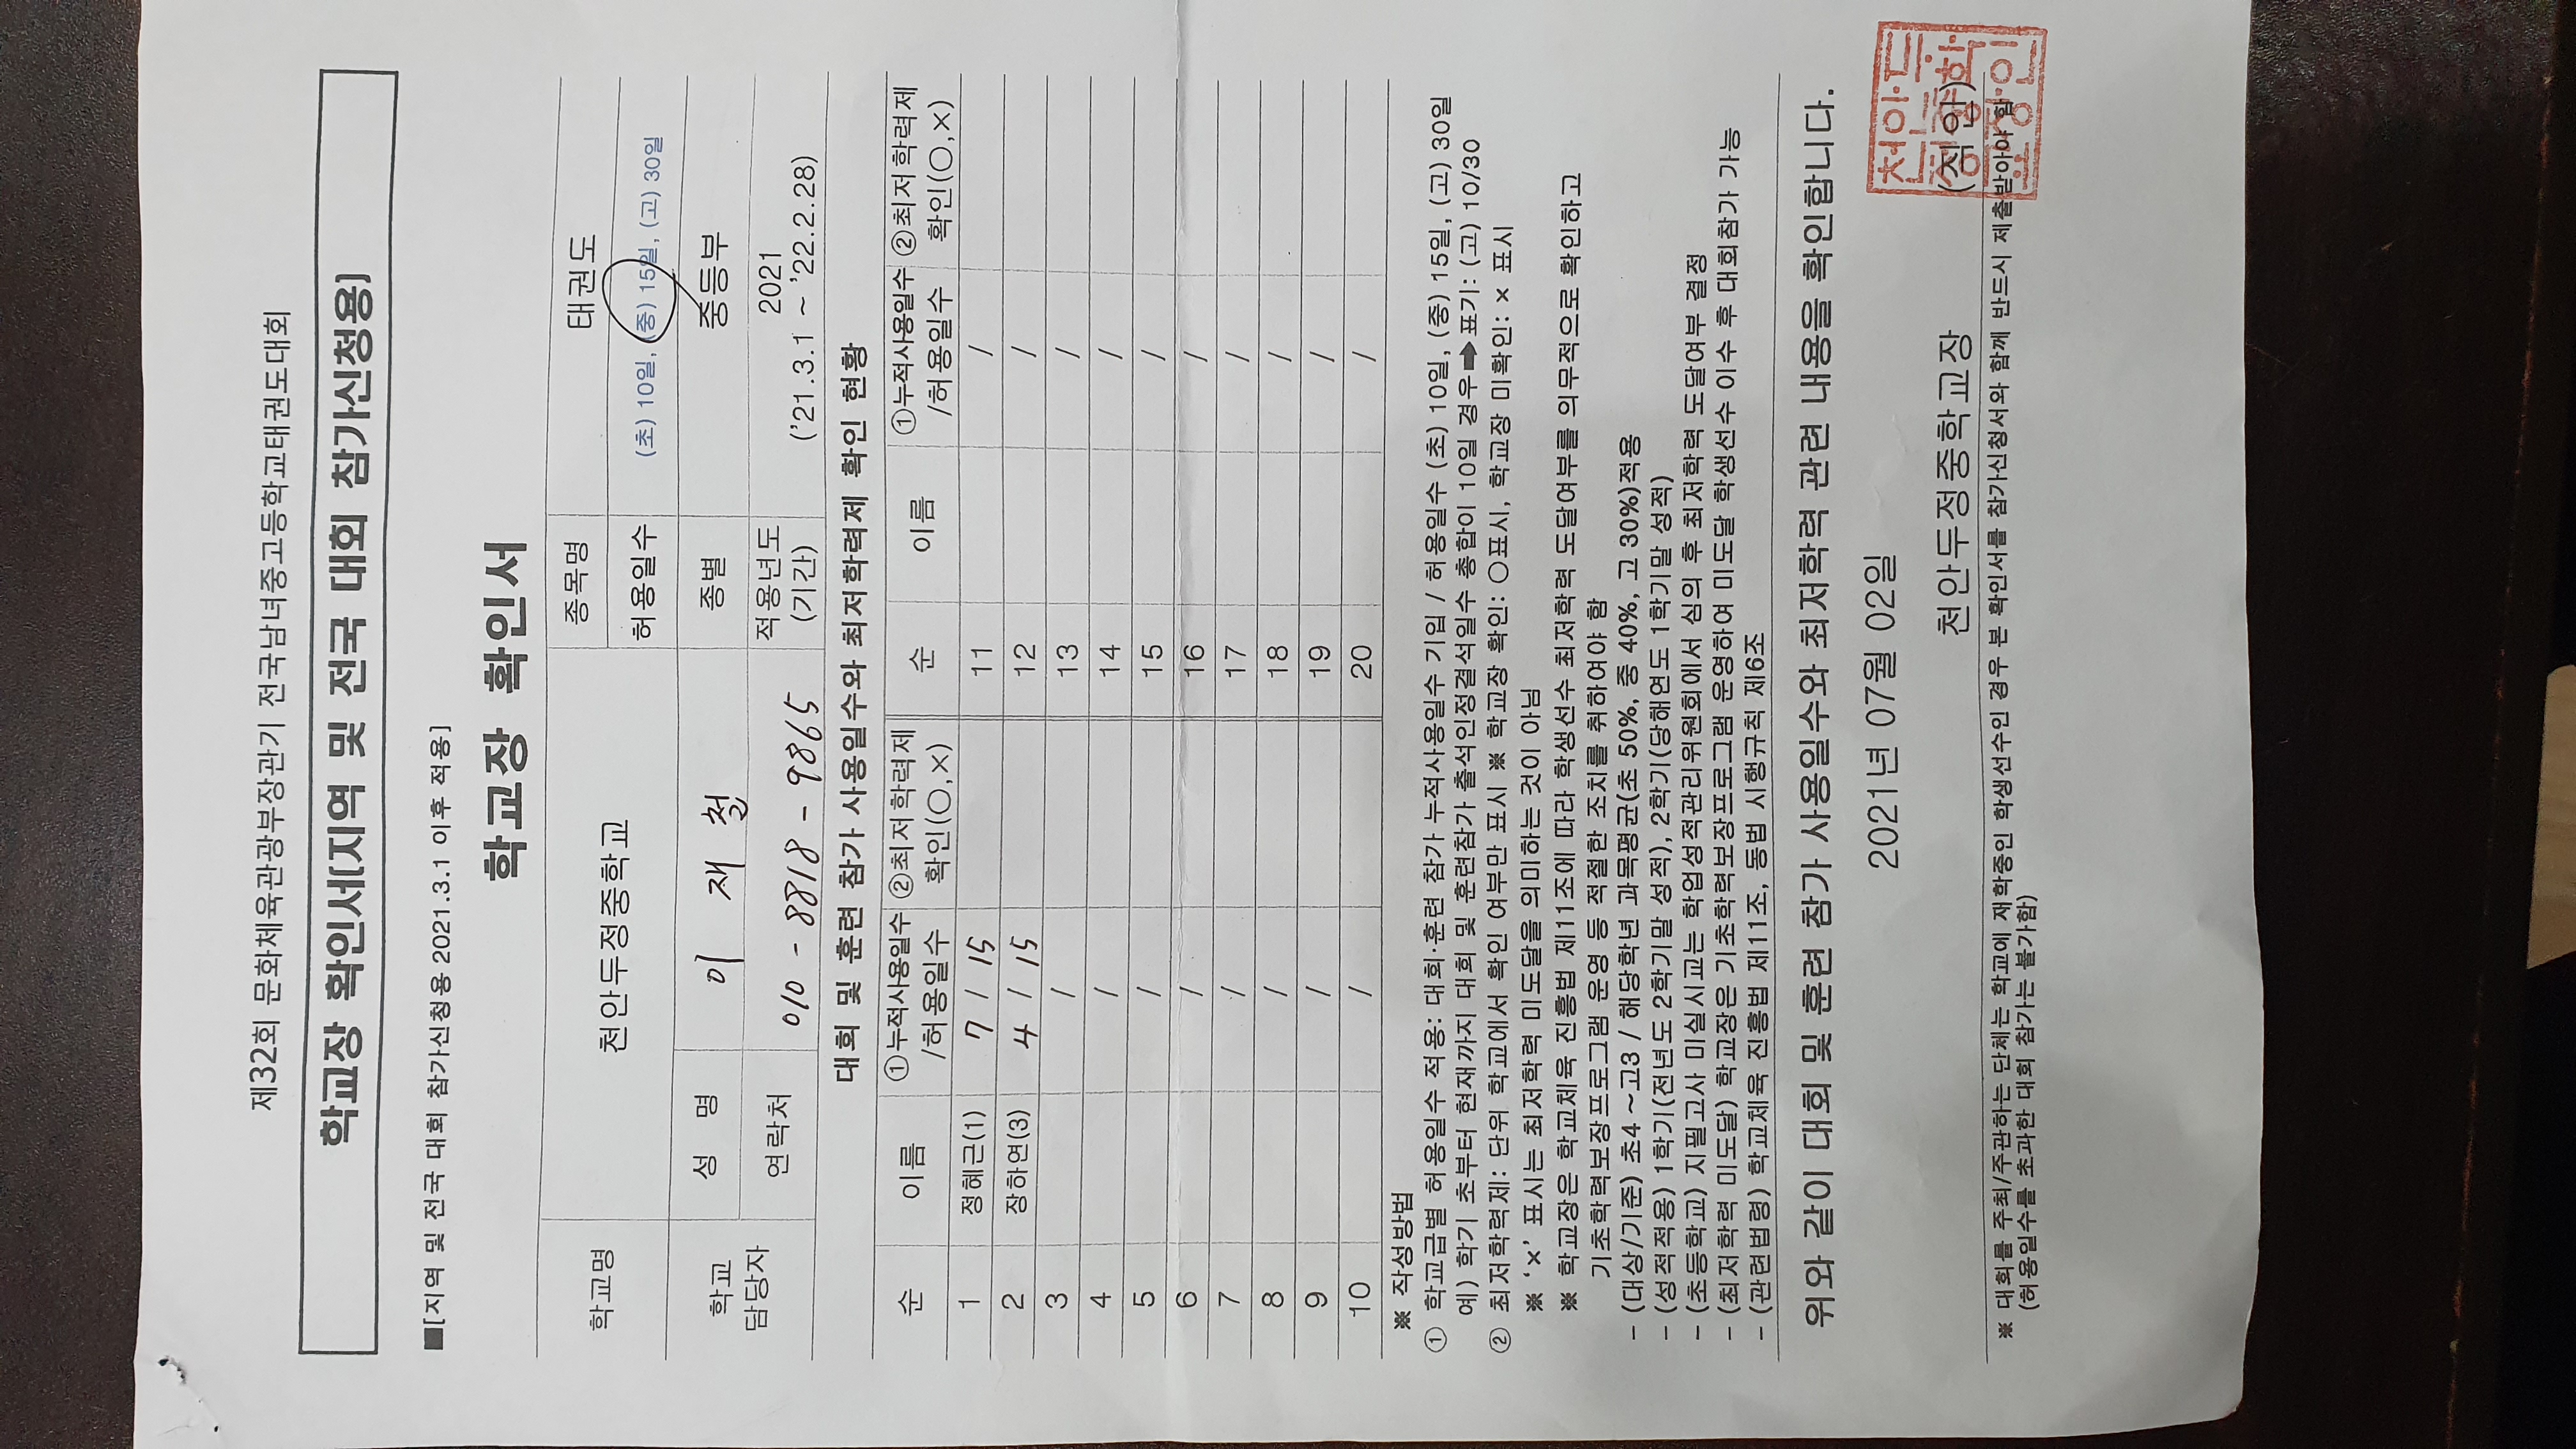 제32회 문화체육관광부장관기 전국남녀중고등학교태권도대회
학교장 확인서[지역 및 전국 대회 참가신청용]
■[지역 및 전국 대회 참가신청용 2021.3.1 이후 적용]
학교장 확인서
학교명 천안두정중학교 종목명 태권도
허용일수 (초) 10일, (중) 15일, (고) 30일
학교 담당자 성 명 이 재 철 종별 중등부
연락처 010 - 8818 - 9865 적용년도 (기간) 2021 ('21.3.1 ~ '22.2.28)
대회 및 훈련 참가 사용일수와 최저학력제 확인 현황
순 이름 ①누적사용일수 /허용일수 ②최저학력제 확인(○,×) 순 이름 ①누적사용일수 /허용일수 ②최저학력제 확인(○,×)
1 정혜근(1) 7 / 15 11 /
2 장하연(3) 4 / 15 12 /
3 / 13 /
4 / 14 /
5 / 15 /
6 / 16 /
7 / 17 /
8 / 18 /
9 / 19 /
10 / 20 /
※ 작성방법
① 학교급별 허용일수 적용: 대회·훈련 참가 누적사용일수 기입 / 허용일수 (초) 10일, (중) 15일, (고) 30일
예) 학기 초부터 현재까지 대회 및 훈련참가 출석인정결석일수 총합이 10일 경우➡표기: (고) 10/30
② 최저학력제: 단위 학교에서 확인 여부만 표시 ※ 학교장 확인: ○표시, 학교장 미확인: × 표시
※ '×' 표시는 최저학력 미도달을 의미하는 것이 아님
※ 학교장은 학교체육 진흥법 제11조에 따라 학생선수 최저학력 도달여부를 의무적으로 확인하고
기초학력보장프로그램 운영 등 적절한 조치를 취하여야 함
- (대상/기준) 초4 ~고3 / 해당학년 과목평균(초 50%, 중 40%, 고 30%)적용
- (성적적용) 1학기(전년도 2학기말 성적), 2학기(당해연도 1학기말 성적)
- (초등학교) 지필고사 미실시교는 학업성적관리위원회에서 심의 후 최저학력 도달여부 결정
- (최저학력 미도달) 학교장은 기초학력보장프로그램 운영하여 미도달 학생선수 이수 후 대회참가 가능
- (관련법령) 학교체육 진흥법 제11조, 동법 시행규칙 제6조
위와 같이 대회 및 훈련 참가 사용일수와 최저학력 관련 내용을 확인합니다.
2021년 07월 02일
천안두정중학교장 (직인)
천안두
정중학
교장인
※ 대회를 주최/주관하는 단체는 학교에 재학중인 학생선수인 경우 본 확인서를 참가신청서와 함께 반드시 제출받아야 함
(허용일수를 초과한 대회 참가는 불가함)